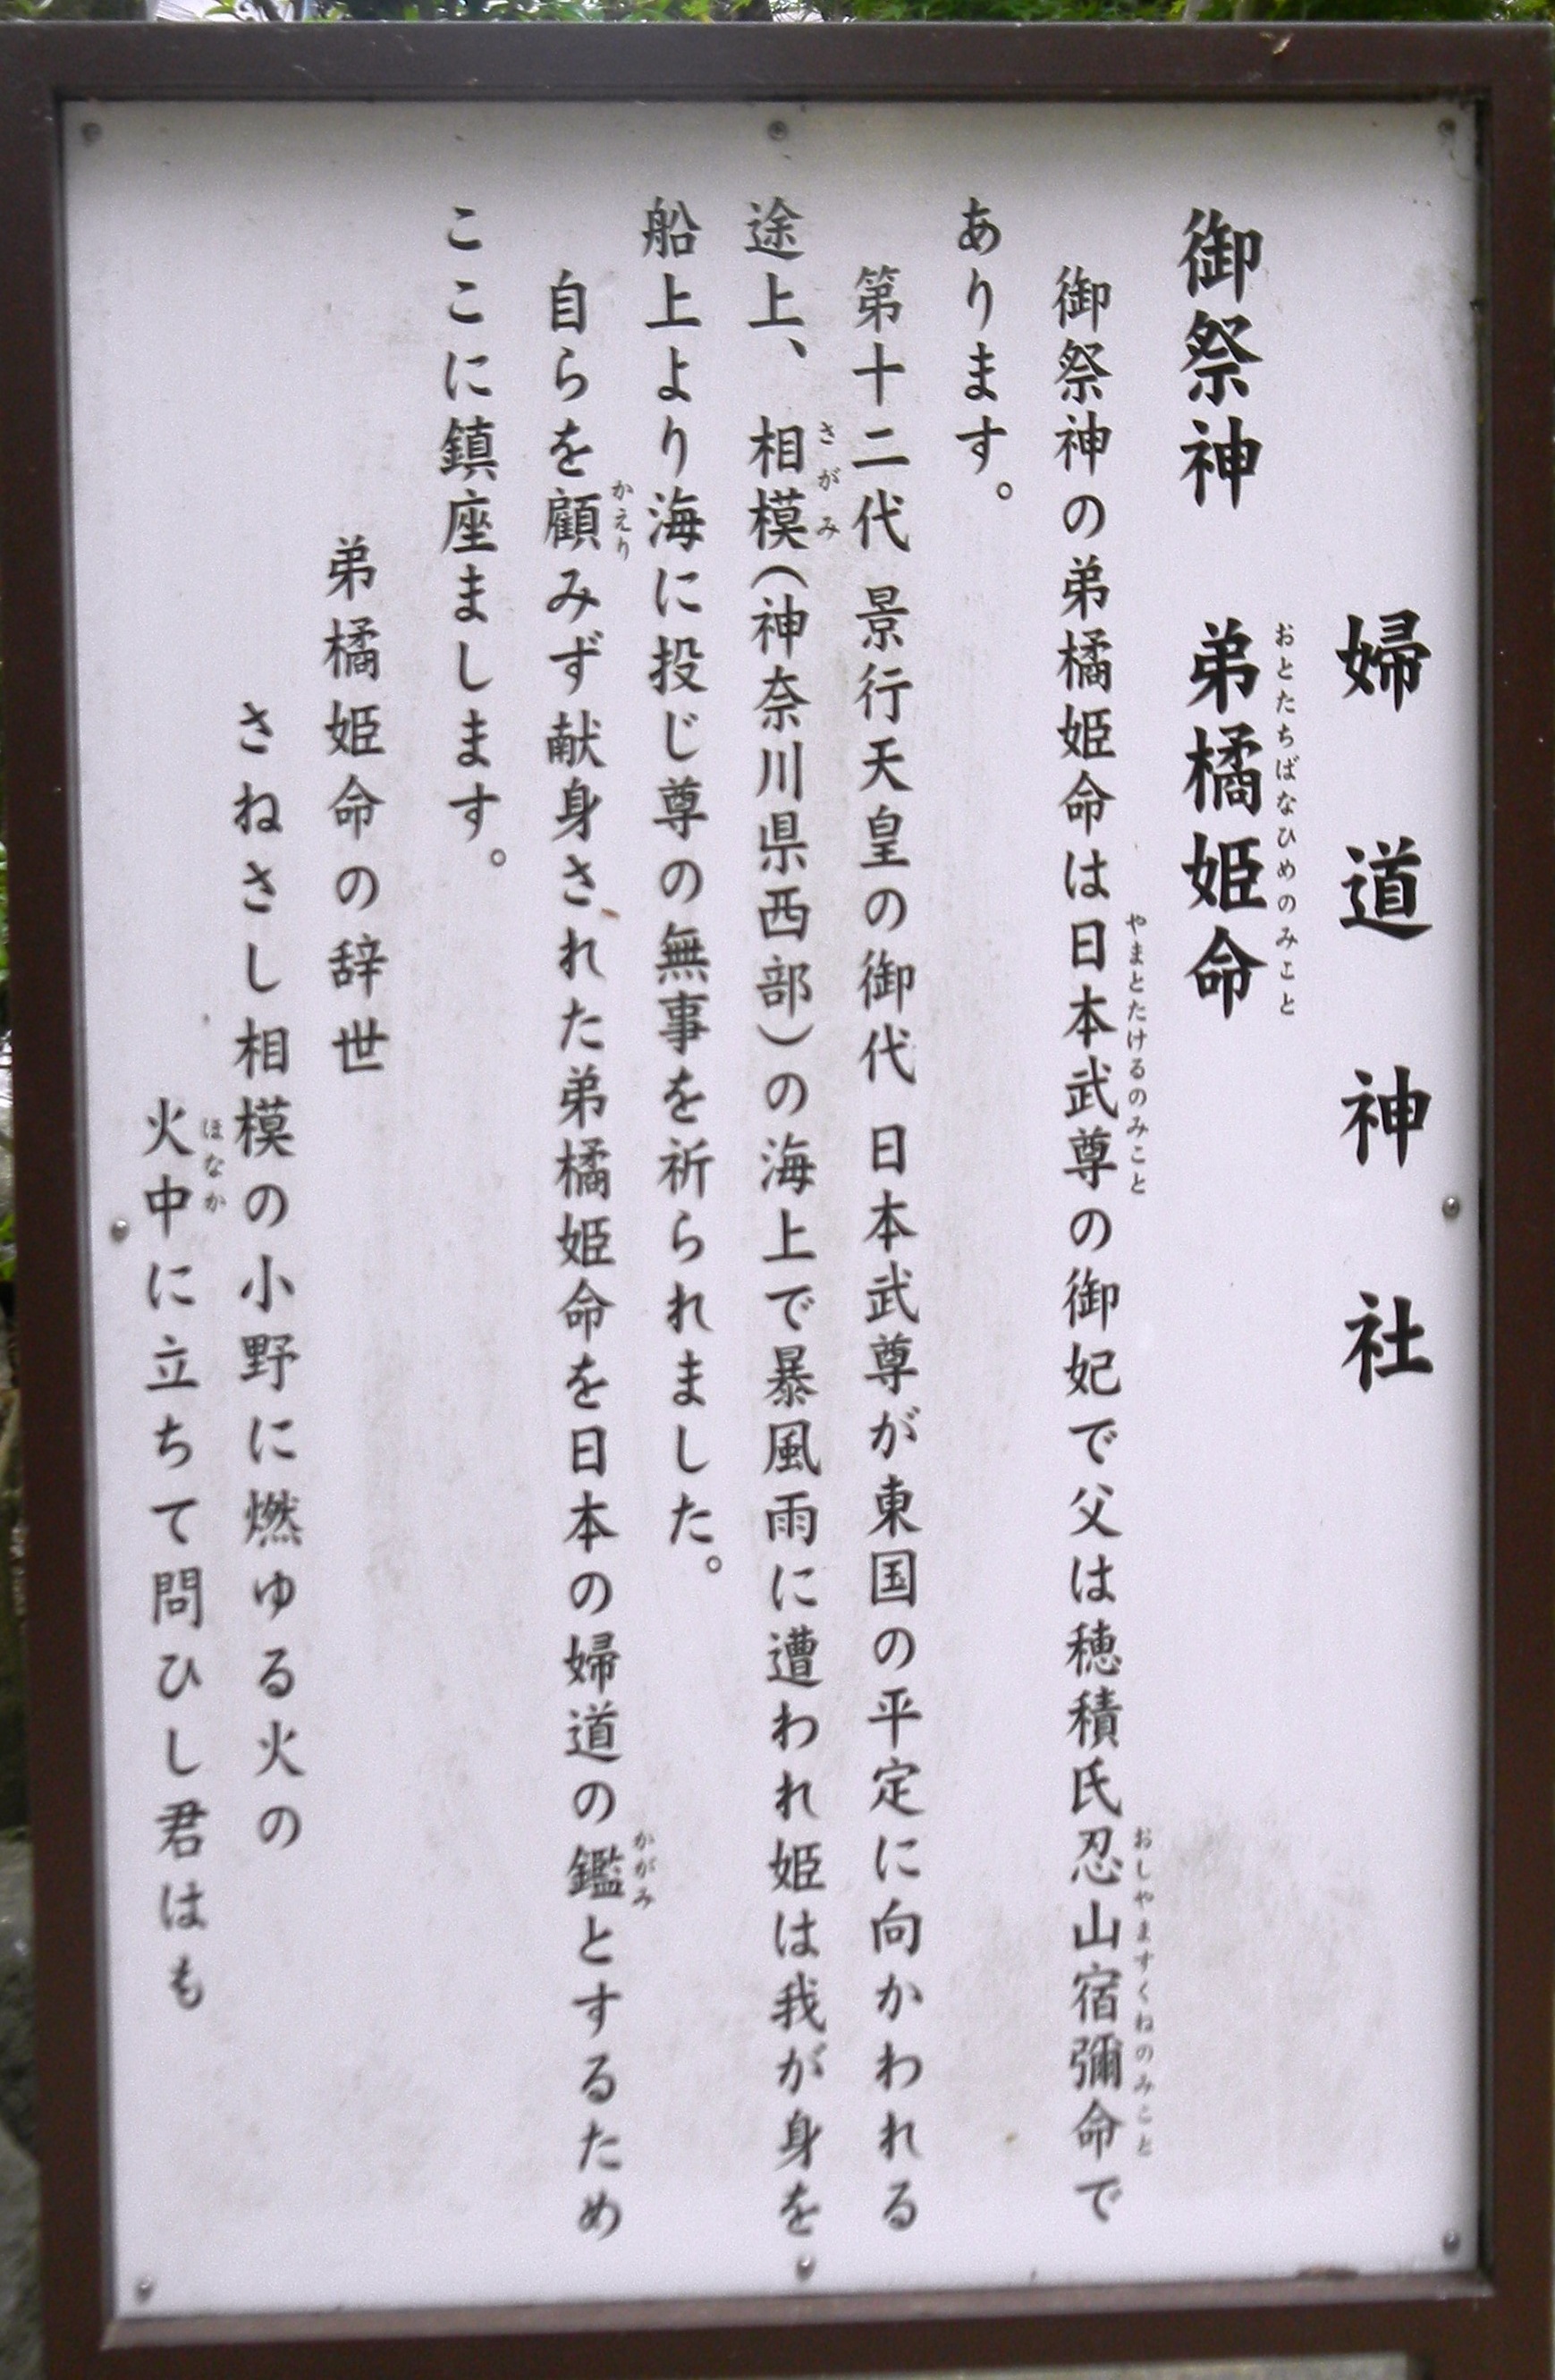 婦道神社
御祭神　弟橘姫命
おとたちばなひめのみこと
御祭神の弟橘姫命は日本武尊の御妃で父は穂積氏忍山宿彌命で
やまとたけるのみこと
おしやますくねのみこと
あります。
第十二代 景行天皇の御代 日本武尊が東国の平定に向かわれる
途上、相模(神奈川県西部)の海上で暴風雨に遭われ姫は我が身を
さがみ
船上より海に投じ尊の無事を祈られました。
自らを顧みず献身された弟橘姫命を日本の婦道の鑑とするため
かえり
かがみ
ここに鎮座まします。
弟橘姫命の辞世
さねさし相模の小野に燃ゆる火の
火中に立ちて問ひし君はも
ほなか